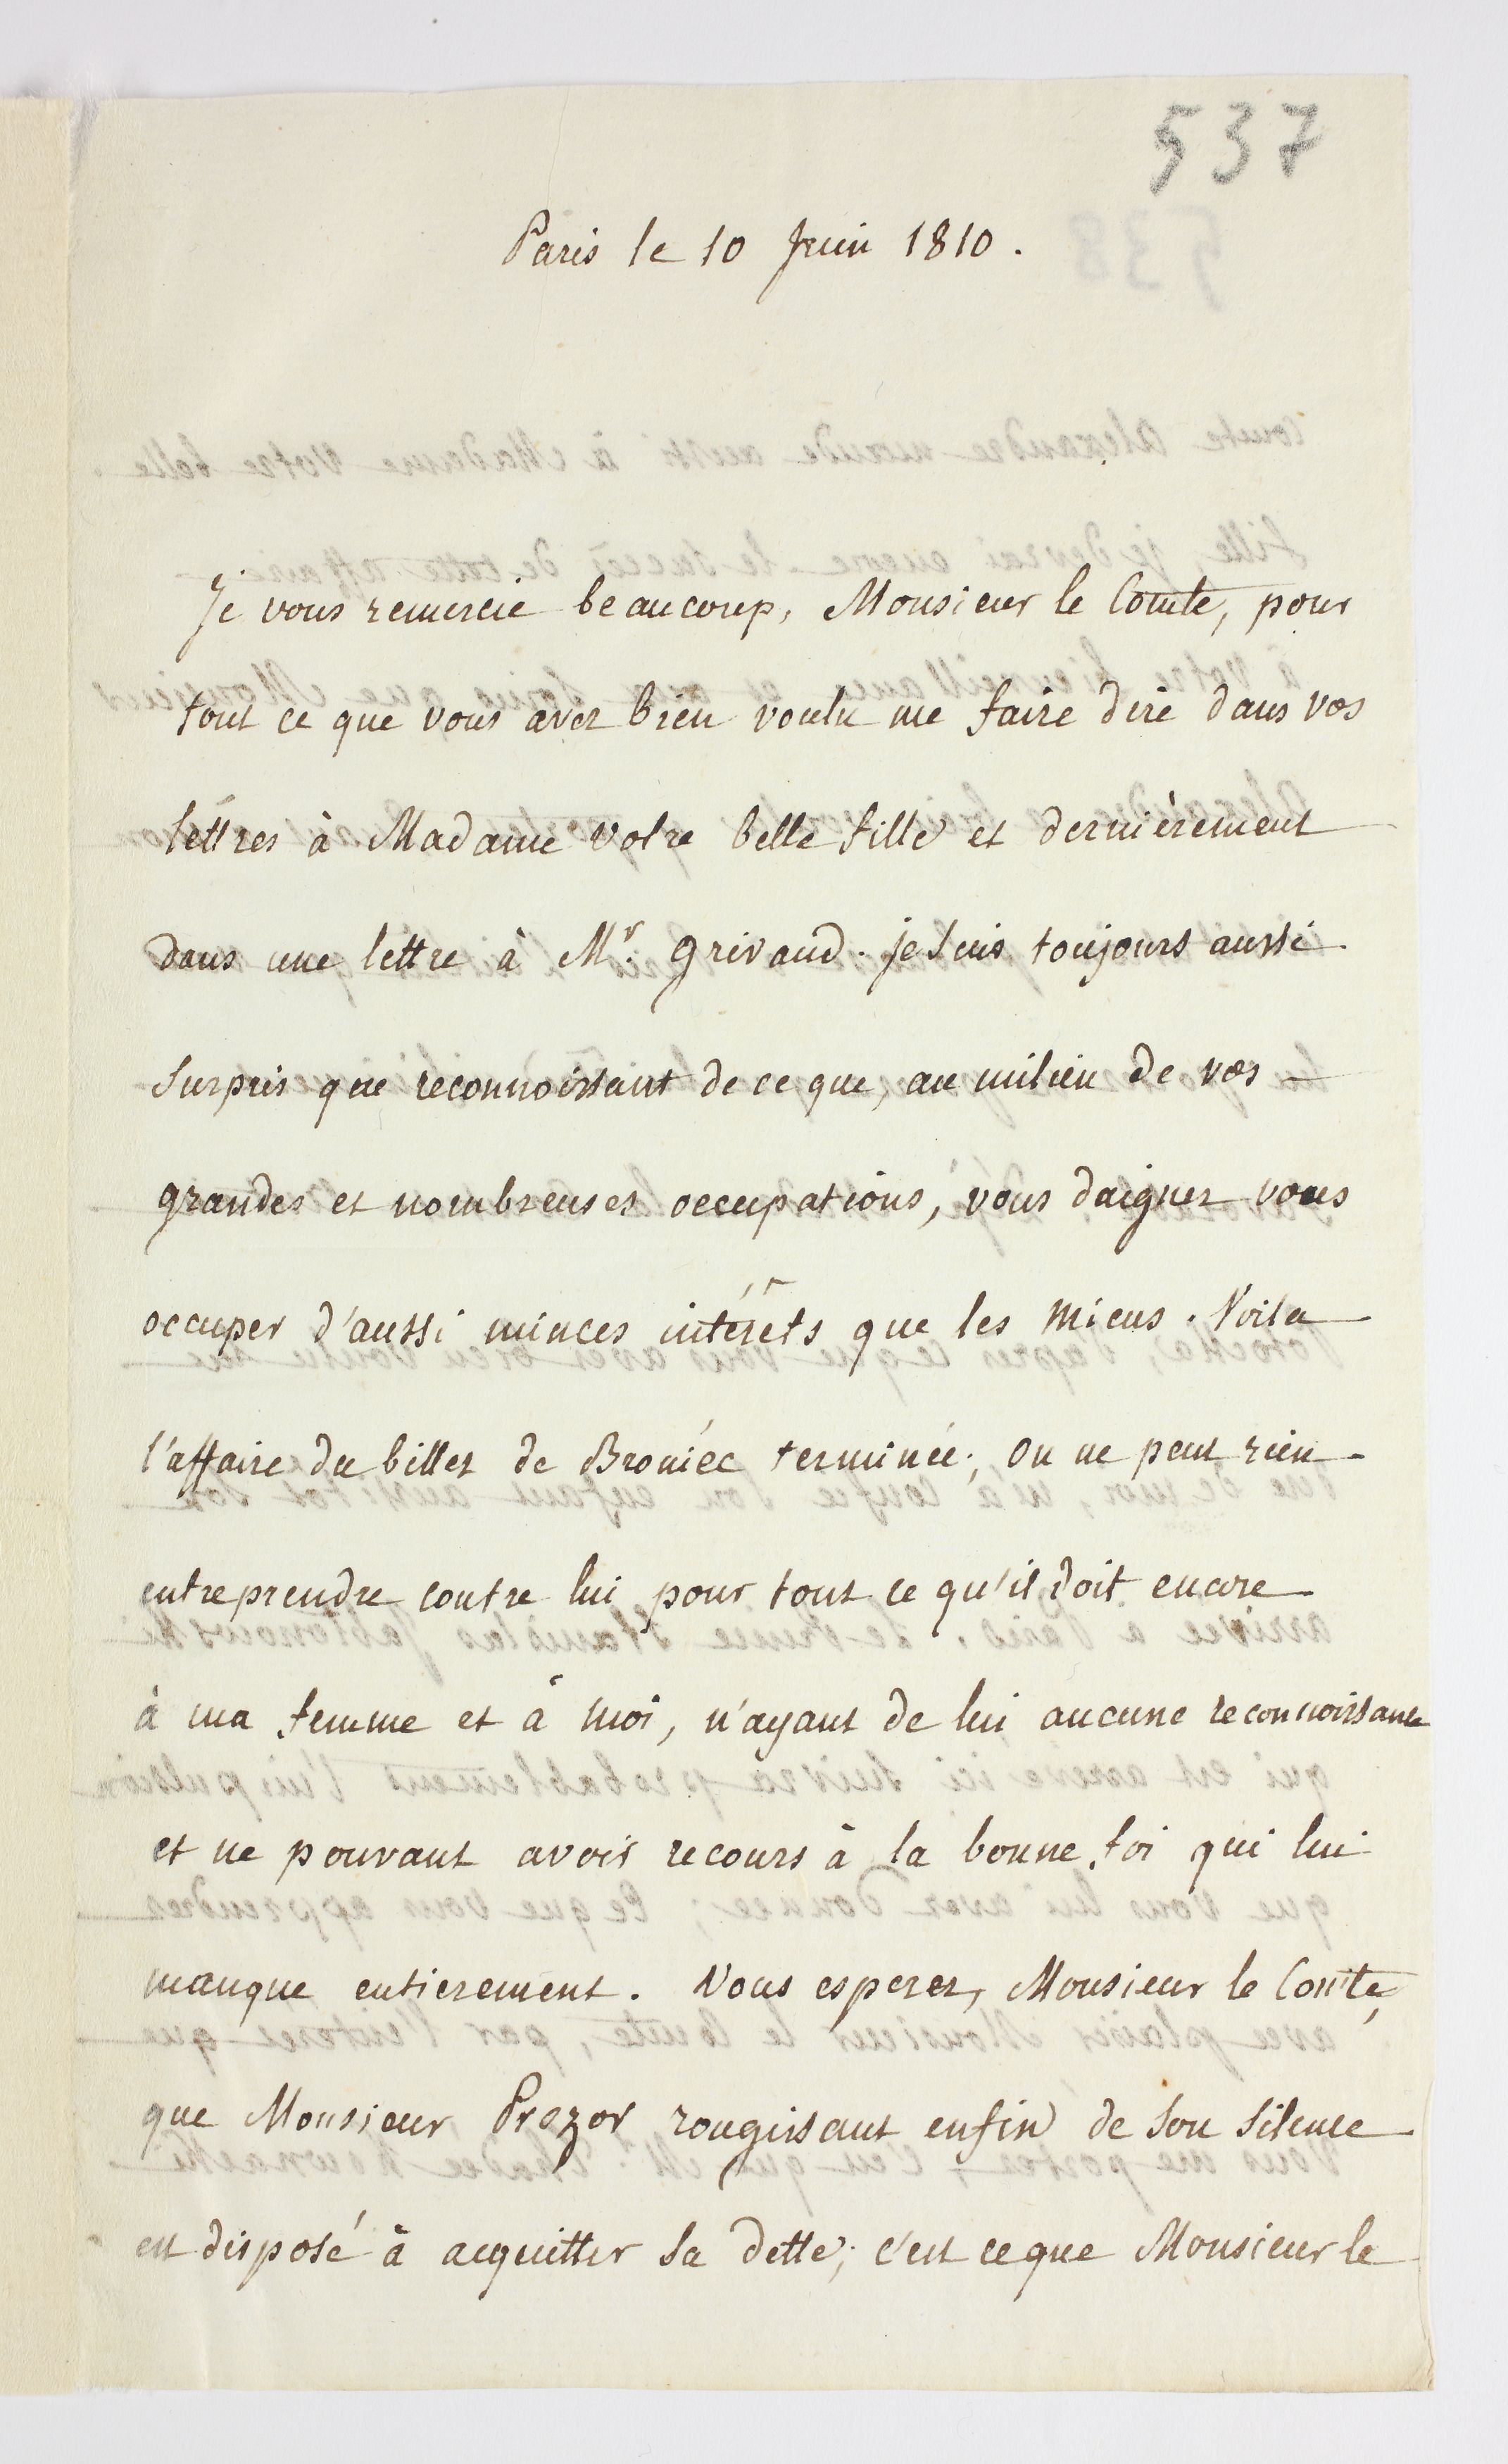 537
Paris le 10 Juin 1810.
Je vous remercie beaucoup, Monsieur le Comte, pour
tout ce que vous avez bien voulu me faire dire dans vos
lettres à Madame votre belle fille et dernièrement
dans une lettre à Mr. Grivaud. je suis toujours aussi
surpris que reconnoissant de ce que, au milieu de vos
grandes et nombreuses occupations, vous daignez vous
occuper d'aussi minces intérêts que les miens. Voila
l'affaire du billet de Broniéc terminée; on ne peut rien
entreprendre contre lui pour tout ce qu'il doit encore
à ma femme et à moi, n'ayant de lui aucune reconnoissance
et ne pouvant avoir recours à la bonne foi qui lui
manque entierement. Vous esperez, Monsieur le Comte,
que Monsieur Prozor rougissant enfin de son silence
est disposé à acquitter sa dette; c'est ce que Monsieur le